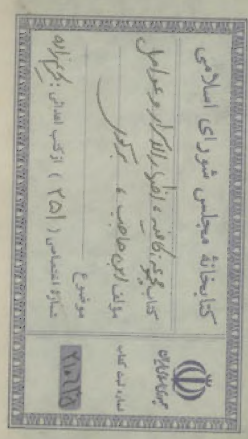 کتابخانهٔ مجلس شورای اسلامی
کتاب مجموعه کافیه، اظهار الاسرار و عوامل
مؤلف ابن حاجب، برکوی
موضوع
شمارهٔ اختصاصی ( ۲۵۱ ) از کتب اهدائی :
جمهوری اسلامی ایران
شماره ثبت کتاب